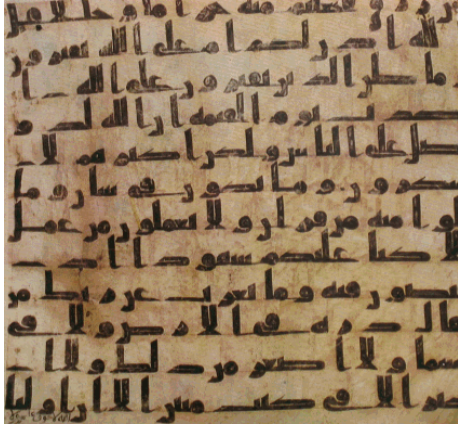 رزق فجعلتم منه حراما وحللا قل
الله اذن لكم ام على الله تفترون
ما ظن الذين يفترون على الله ا
لكذب يوم القيمة ان الله لذو
فضل على الناس ولكن اكثرهم لا
يشكرون وما تكون في شان وما
تتلوا منه من قران ولا تعملون من عمل
الا كنا عليكم شهودا اذ
تفيضون فيه وما يعزب عن ربك من
مثقال ذرة في الارض ولا في
السما ولا اصغر من ذلك ولا ا
كبر الا في كتب مبين الا ان اوليا